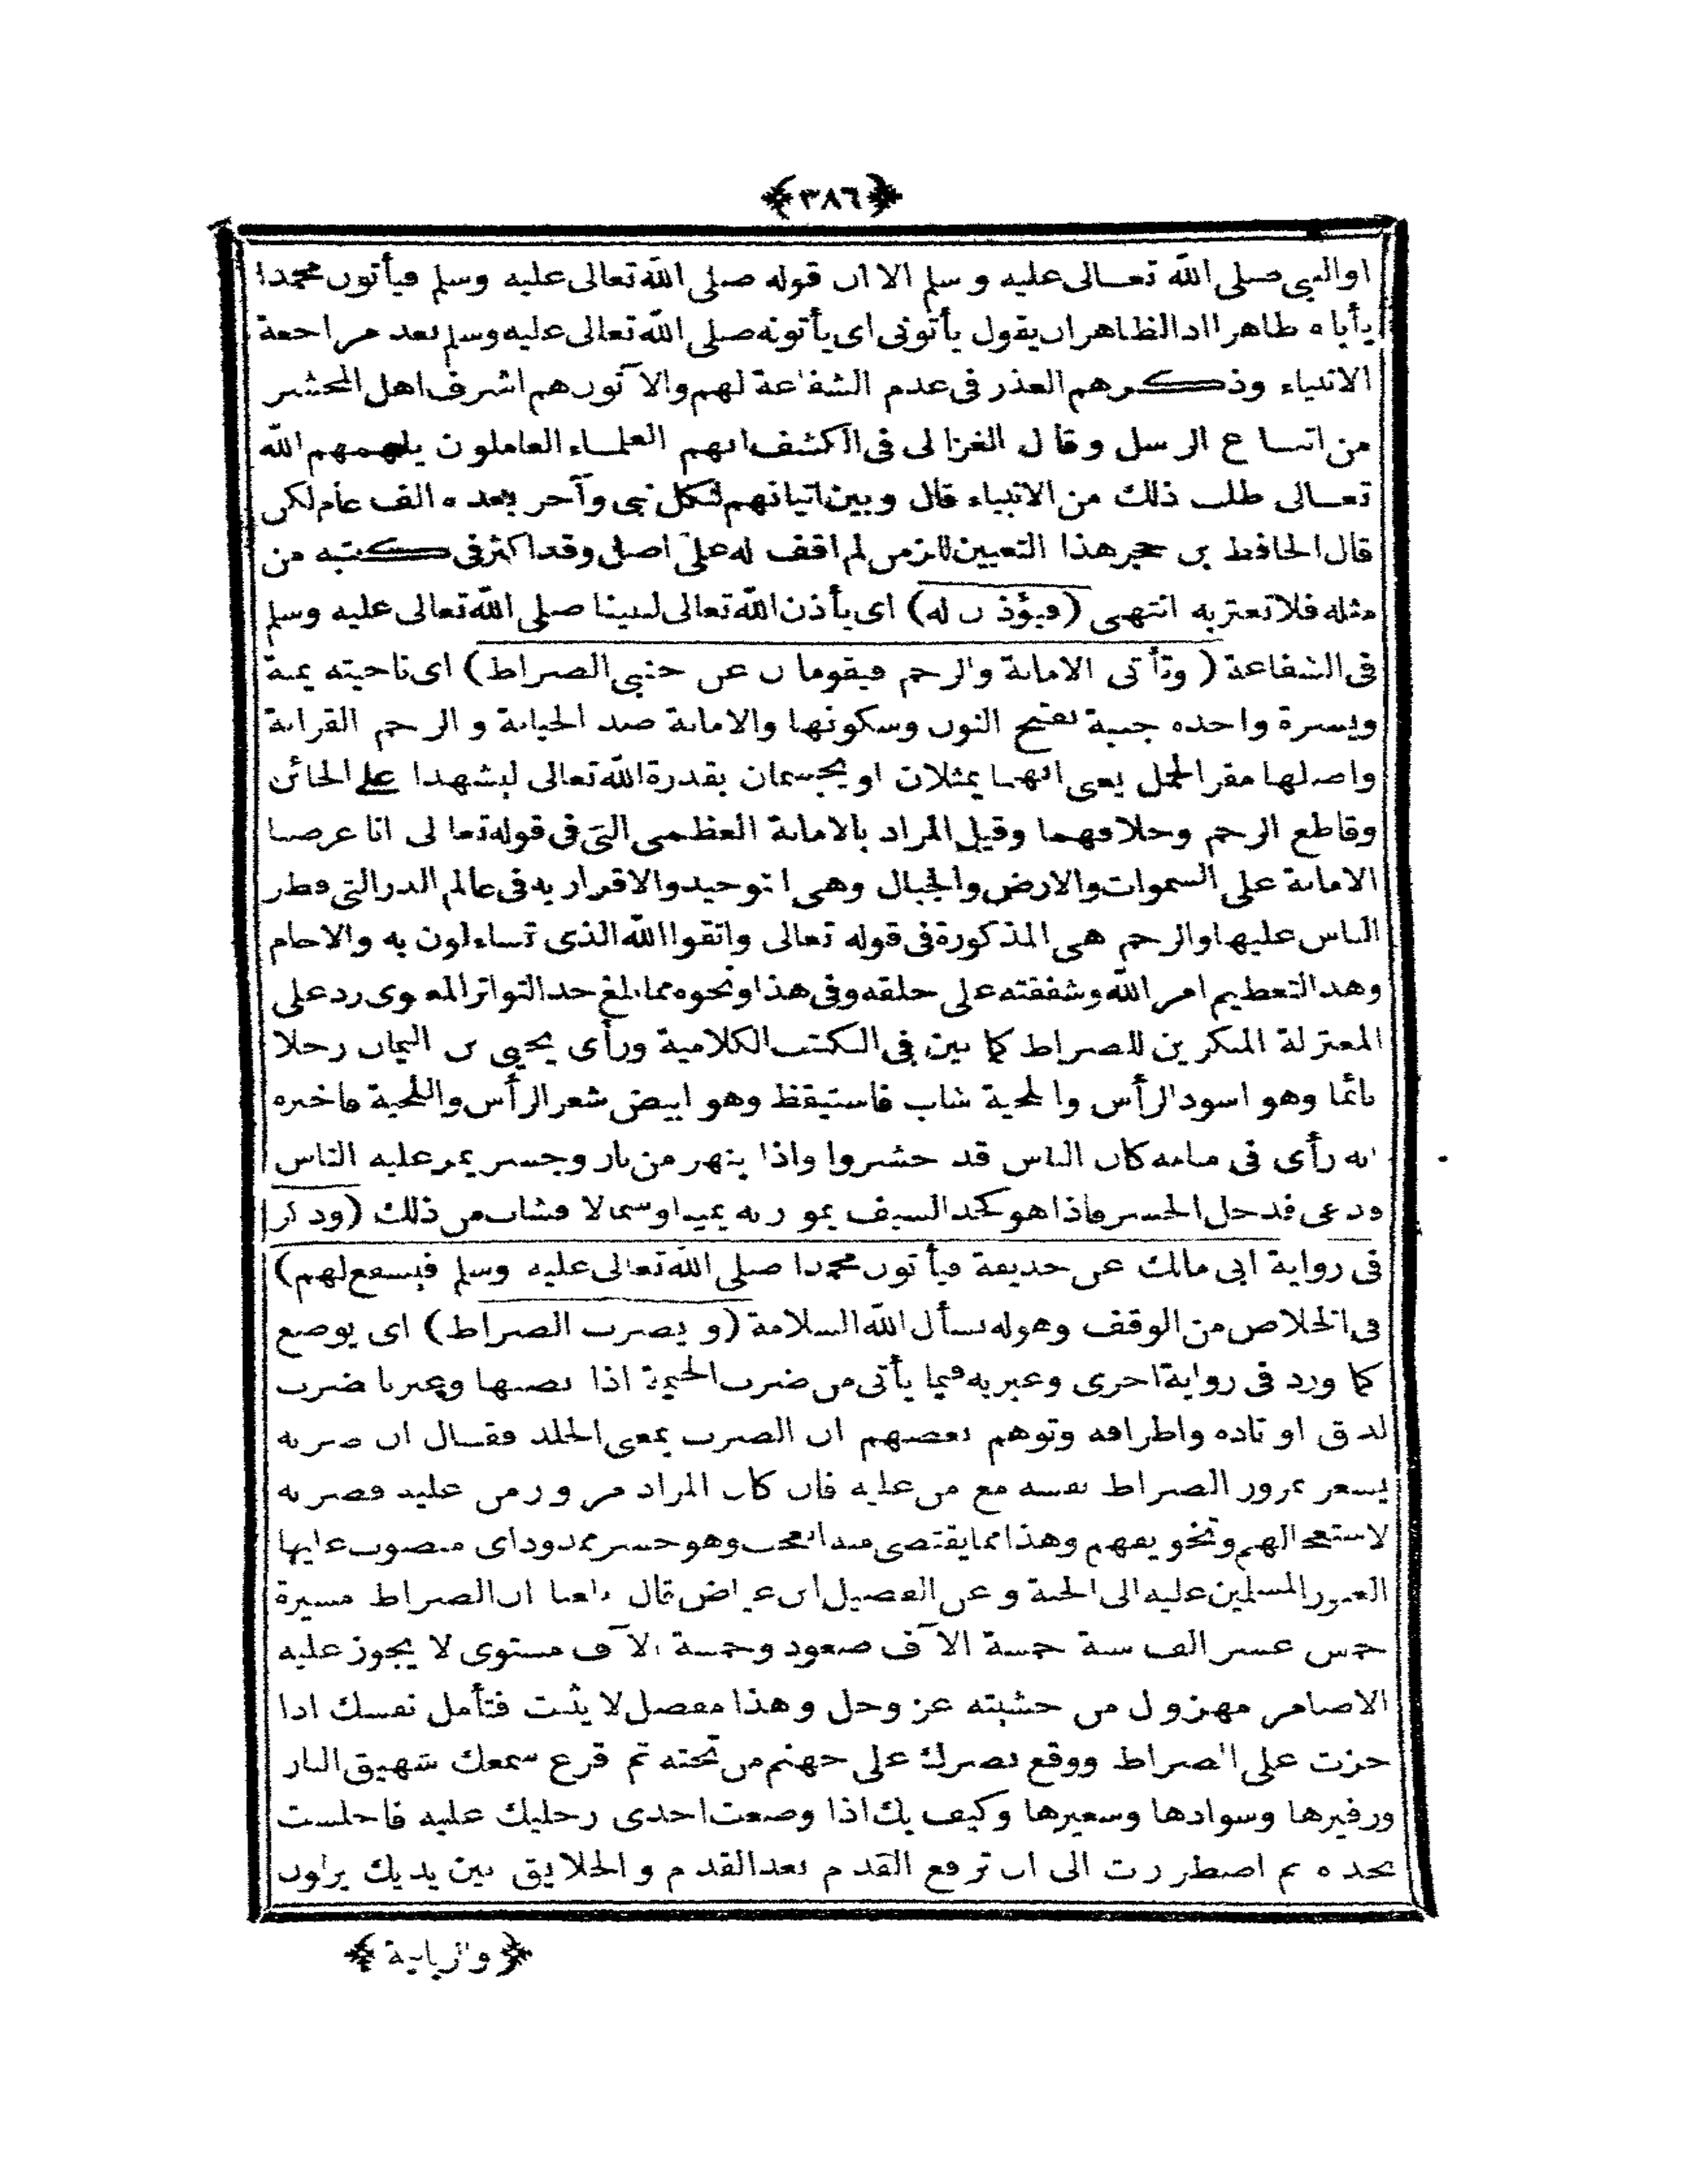 ﴿٣٨٦﴾
او النبى صلى الله تعالى عليه وسلم الا ان قوله صلى الله تعالى عليه وسلم فيأتون محمدا
يأباه ظاهرا اذ الظاهر ان يقول يأتونى اى يأتونه صلى الله تعالى عليه وسلم بعد مراجعة
الانبياء وذكرهم العذر فى عدم الشفاعة لهم والآتون هم اشرف اهل المحشر
من اتباع الرسل وقال الغزالى فى الكشف انهم العلماء العاملون يلهمهم الله
تعالى طلب ذلك من الانبياء قال وبين اتيانهم لكل نبى وآخر بعده الف عام لكن
قال الحافظ بن حجر هذا التعيين للزمن لم اقف له على اصل وقد اكثر فى كتبه من
مثله فلا تغتر به انتهى (فيؤذن له) اى يأذن الله تعالى لنبينا صلى الله تعالى عليه وسلم
فى الشفاعة (وتأتى الامانة والرحم فيقومان عن جنبى الصراط) اى ناحيته يمنة
ويسرة واحده جنبة بفتح النون وسكونها والامانة ضد الخيانة والرحم القرابة
واصلها مقر الحمل يعنى انهما يمثلان او يجسمان بقدرة الله تعالى ليشهدا على الخائن
وقاطع الرحم وخلافهما وقيل المراد بالامانة العظمى التى فى قوله تعالى انا عرضنا
الامانة على السموات والارض والجبال وهى التوحيد والاقرار به فى عالم الذر التى فطر
الناس عليها والرحم هى المذكورة فى قوله تعالى واتقوا الله الذى تساءلون به والارحام
وهذ التعظيم امر الله وشفقته على خلقه وفى هذا ونحوه مما بلغ حد التواتر المعنوى رد على
المعتزلة المنكرين للصراط كما بين فى الكتب الكلامية ورأى يحيى بن اليمان رجلا
نائما وهو اسود الرأس واللحية شاب فاستيقظ وهو ابيض شعر الرأس واللحية فاخبره
انه رأى فى منامه كان الناس قد حشروا واذا بنهر من نار وجسر يمر عليه الناس
ودعى فدخل الجسر فاذا هو كحد السيف يمور به يمينا وشمالا فشاب من ذلك (وذكر
فى رواية ابى مالك عن حذيفة فيأتون محمدا صلى الله تعالى عليه وسلم فيشفع لهم)
فى الخلاص من الوقف وهوله نسأل الله السلامة (ويضرب الصراط) اى يوضع
كما ورد فى رواية اخرى وعبر به فيما يأتى من ضرب الخيمة اذا نصبها وعبرنا ضرب
لدق اوتاده واطرافه وتوهم بعضهم ان الضرب بمعنى الجلد فقال ان ضربه
يشعر بمرور الصراط نفسه مع من عليه فان كان المراد مرور من عليه فضربه
لاستعجالهم وتخويفهم وهذا مما يقتضى منه العجب وهو جسر ممدود اى منصوب عليها
العبور المسلمين عليه الى الجنة وعن الفضيل ابن عياض قال بلغنا ان الصراط مسيرة
خمس عشر الف سنة خمسة آلاف صعود وخمسة آلاف مستوى لا يجوز عليه
الاضامر مهزول من خشيته عز وجل وهذا معضل لا يثبت فتأمل نفسك اذا
جزت على الصراط ووقع بصرك على جهنم من تحته ثم قرع سمعك شهيق النار
وزفيرها وسوادها وسعيرها وكيف بك اذا وضعت احدى رجليك عليه فاحسست
بحده ثم اضطررت الى ان ترفع القدم بعد القدم والخلايق بين يديك يزلون
﴿والزبانية﴾